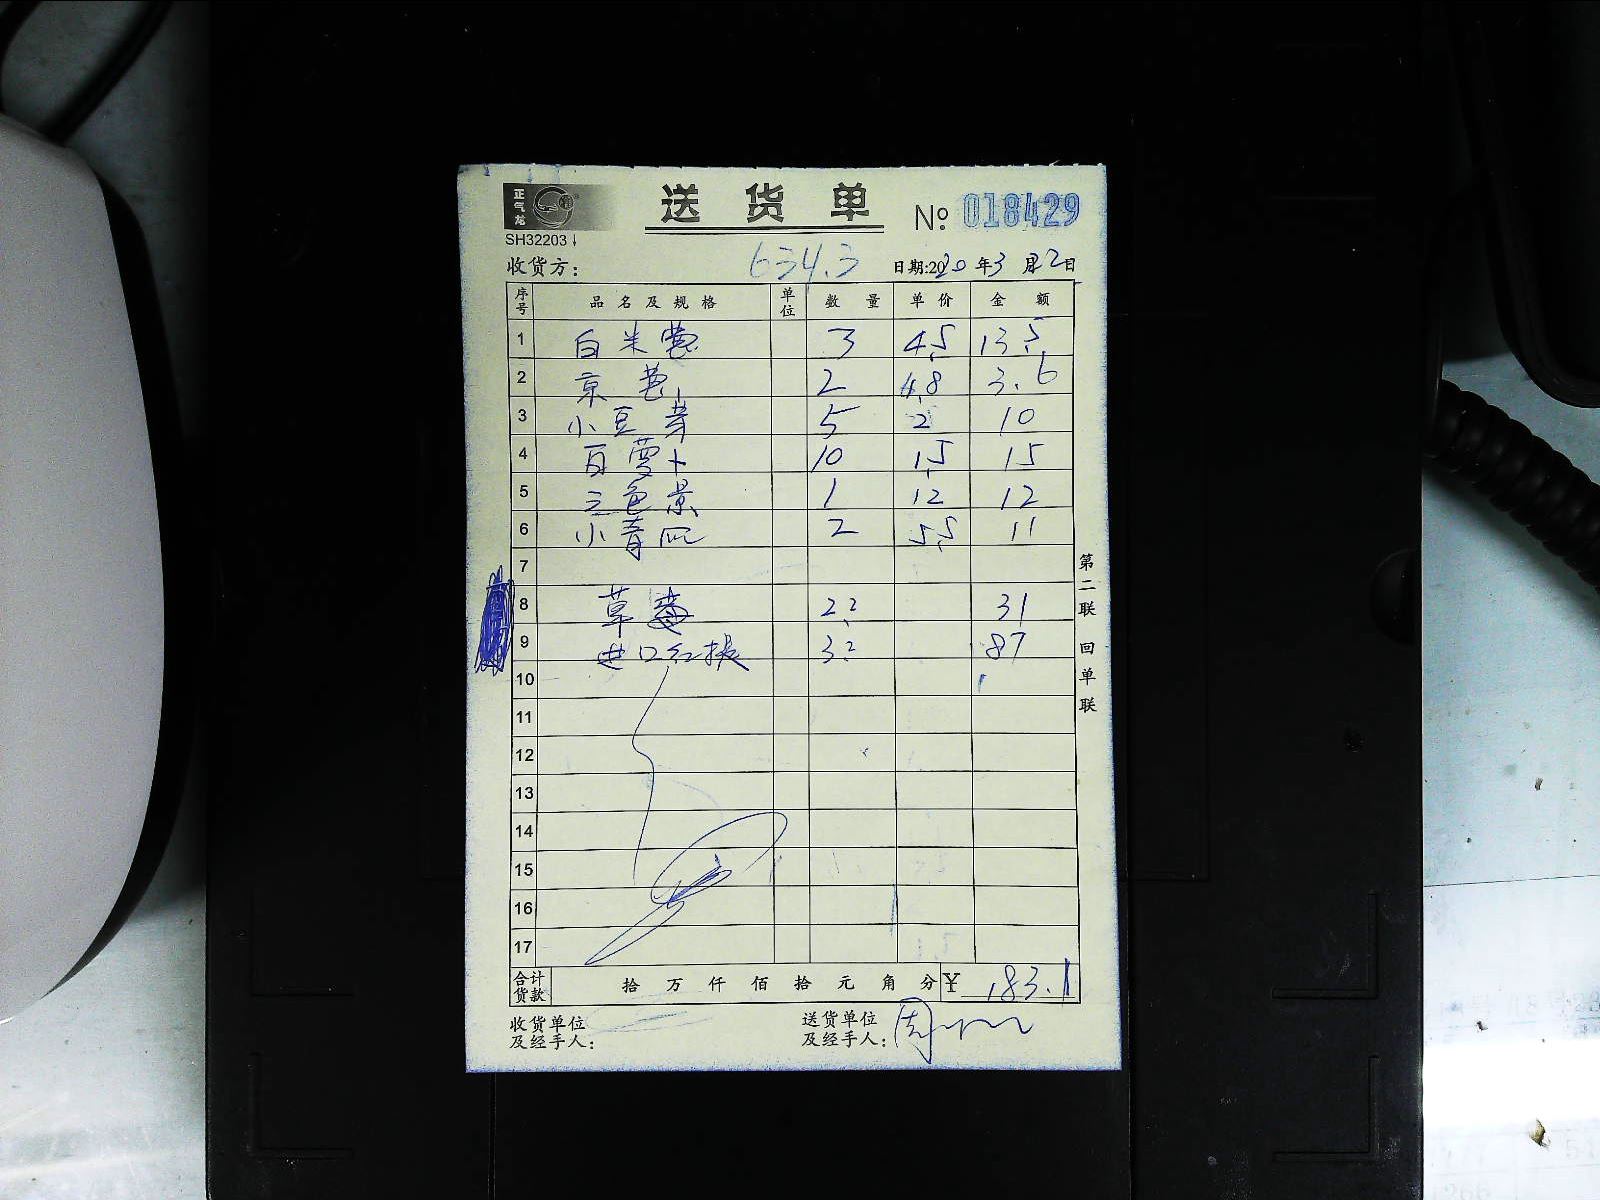 正气龙
送货单
№ 018429
SH32203
634.3
收货方： 日期:2020年3月22日
序号 品名及规格 单位 数量 单价 金额
1 白米苋 3 4.5 13.5
2 京葱 2 1.8 3.6
3 小豆芽 5 2 10
4 白萝卜 10 1.5 15
5 三色景 1 12 12
6 小青瓜 2 5.5 11
7
8 草莓 2.2 31
9 进口红提 3.2 87
10
11
12
13
14
15
16
17
合计货款 拾万仟佰拾元角分 ¥ 183.1
收货单位及经手人： 送货单位及经手人： 周
第二联 回单联